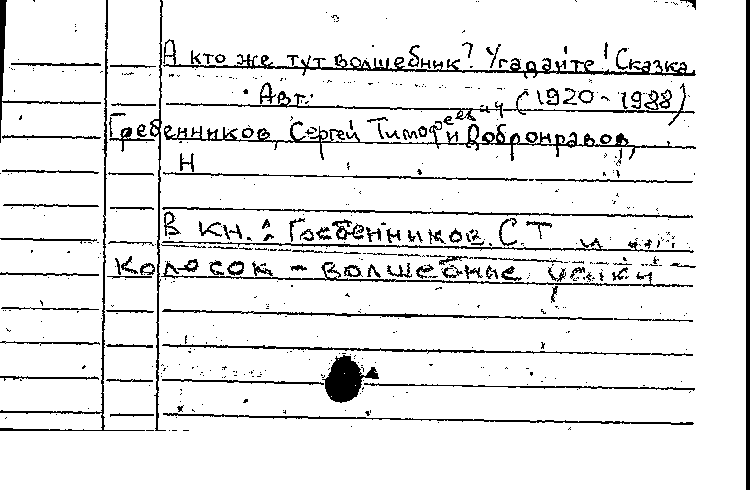 А кто же тут волшебник? Угадайте! Сказка
Авт.: (1920-1988)
Гребенников, Сергей Тимофеевич и Добронравов,
Н
В кн.: Гребенников С.Т и
Колосок - волшебные усики